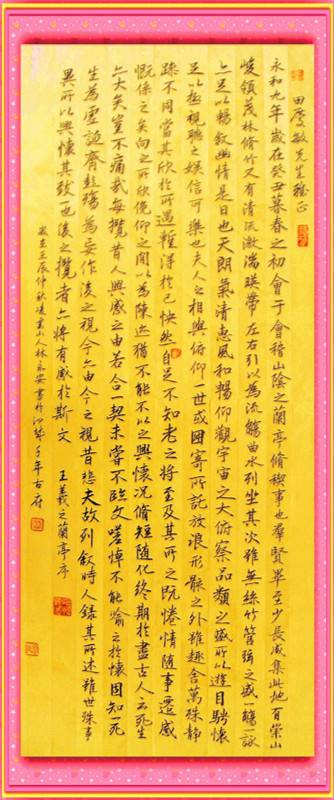 田慶敏先生雅正
永和九年歲在癸丑暮春之初會于會稽山陰之蘭亭脩稧事也羣賢畢至少長咸集此地有崇山
峻領茂林脩竹又有清流激湍暎帶左右引以為流觴曲水列坐其次雖無絲竹管弦之盛一觴一詠
亦足以暢敘幽情是日也天朗氣清惠風和暢仰觀宇宙之大俯察品類之盛所以遊目騁懷
足以極視聽之娛信可樂也夫人之相與俯仰一世或因寄所託放浪形骸之外雖趣舍萬殊靜
躁不同當其欣於所遇暫得於己怏然自足不知老之將至及其所之既惓情隨事遷感
慨係之矣向之所欣俛仰之閒以為陳迹猶不能不以之興懷况脩短隨化終期於盡古人云死生
亦大矣豈不痛哉每攬昔人興感之由若合一契未嘗不臨文嗟悼不能喻之於懷固知一死
生為虛誕齊彭殤為妄作後之視今亦由今之視昔悲夫故列敘時人錄其所述雖世殊事
異所以興懷其致一也後之攬者亦將有感於斯文 王羲之蘭亭序
歲在壬辰仲秋山人林永安書於江城千年古府